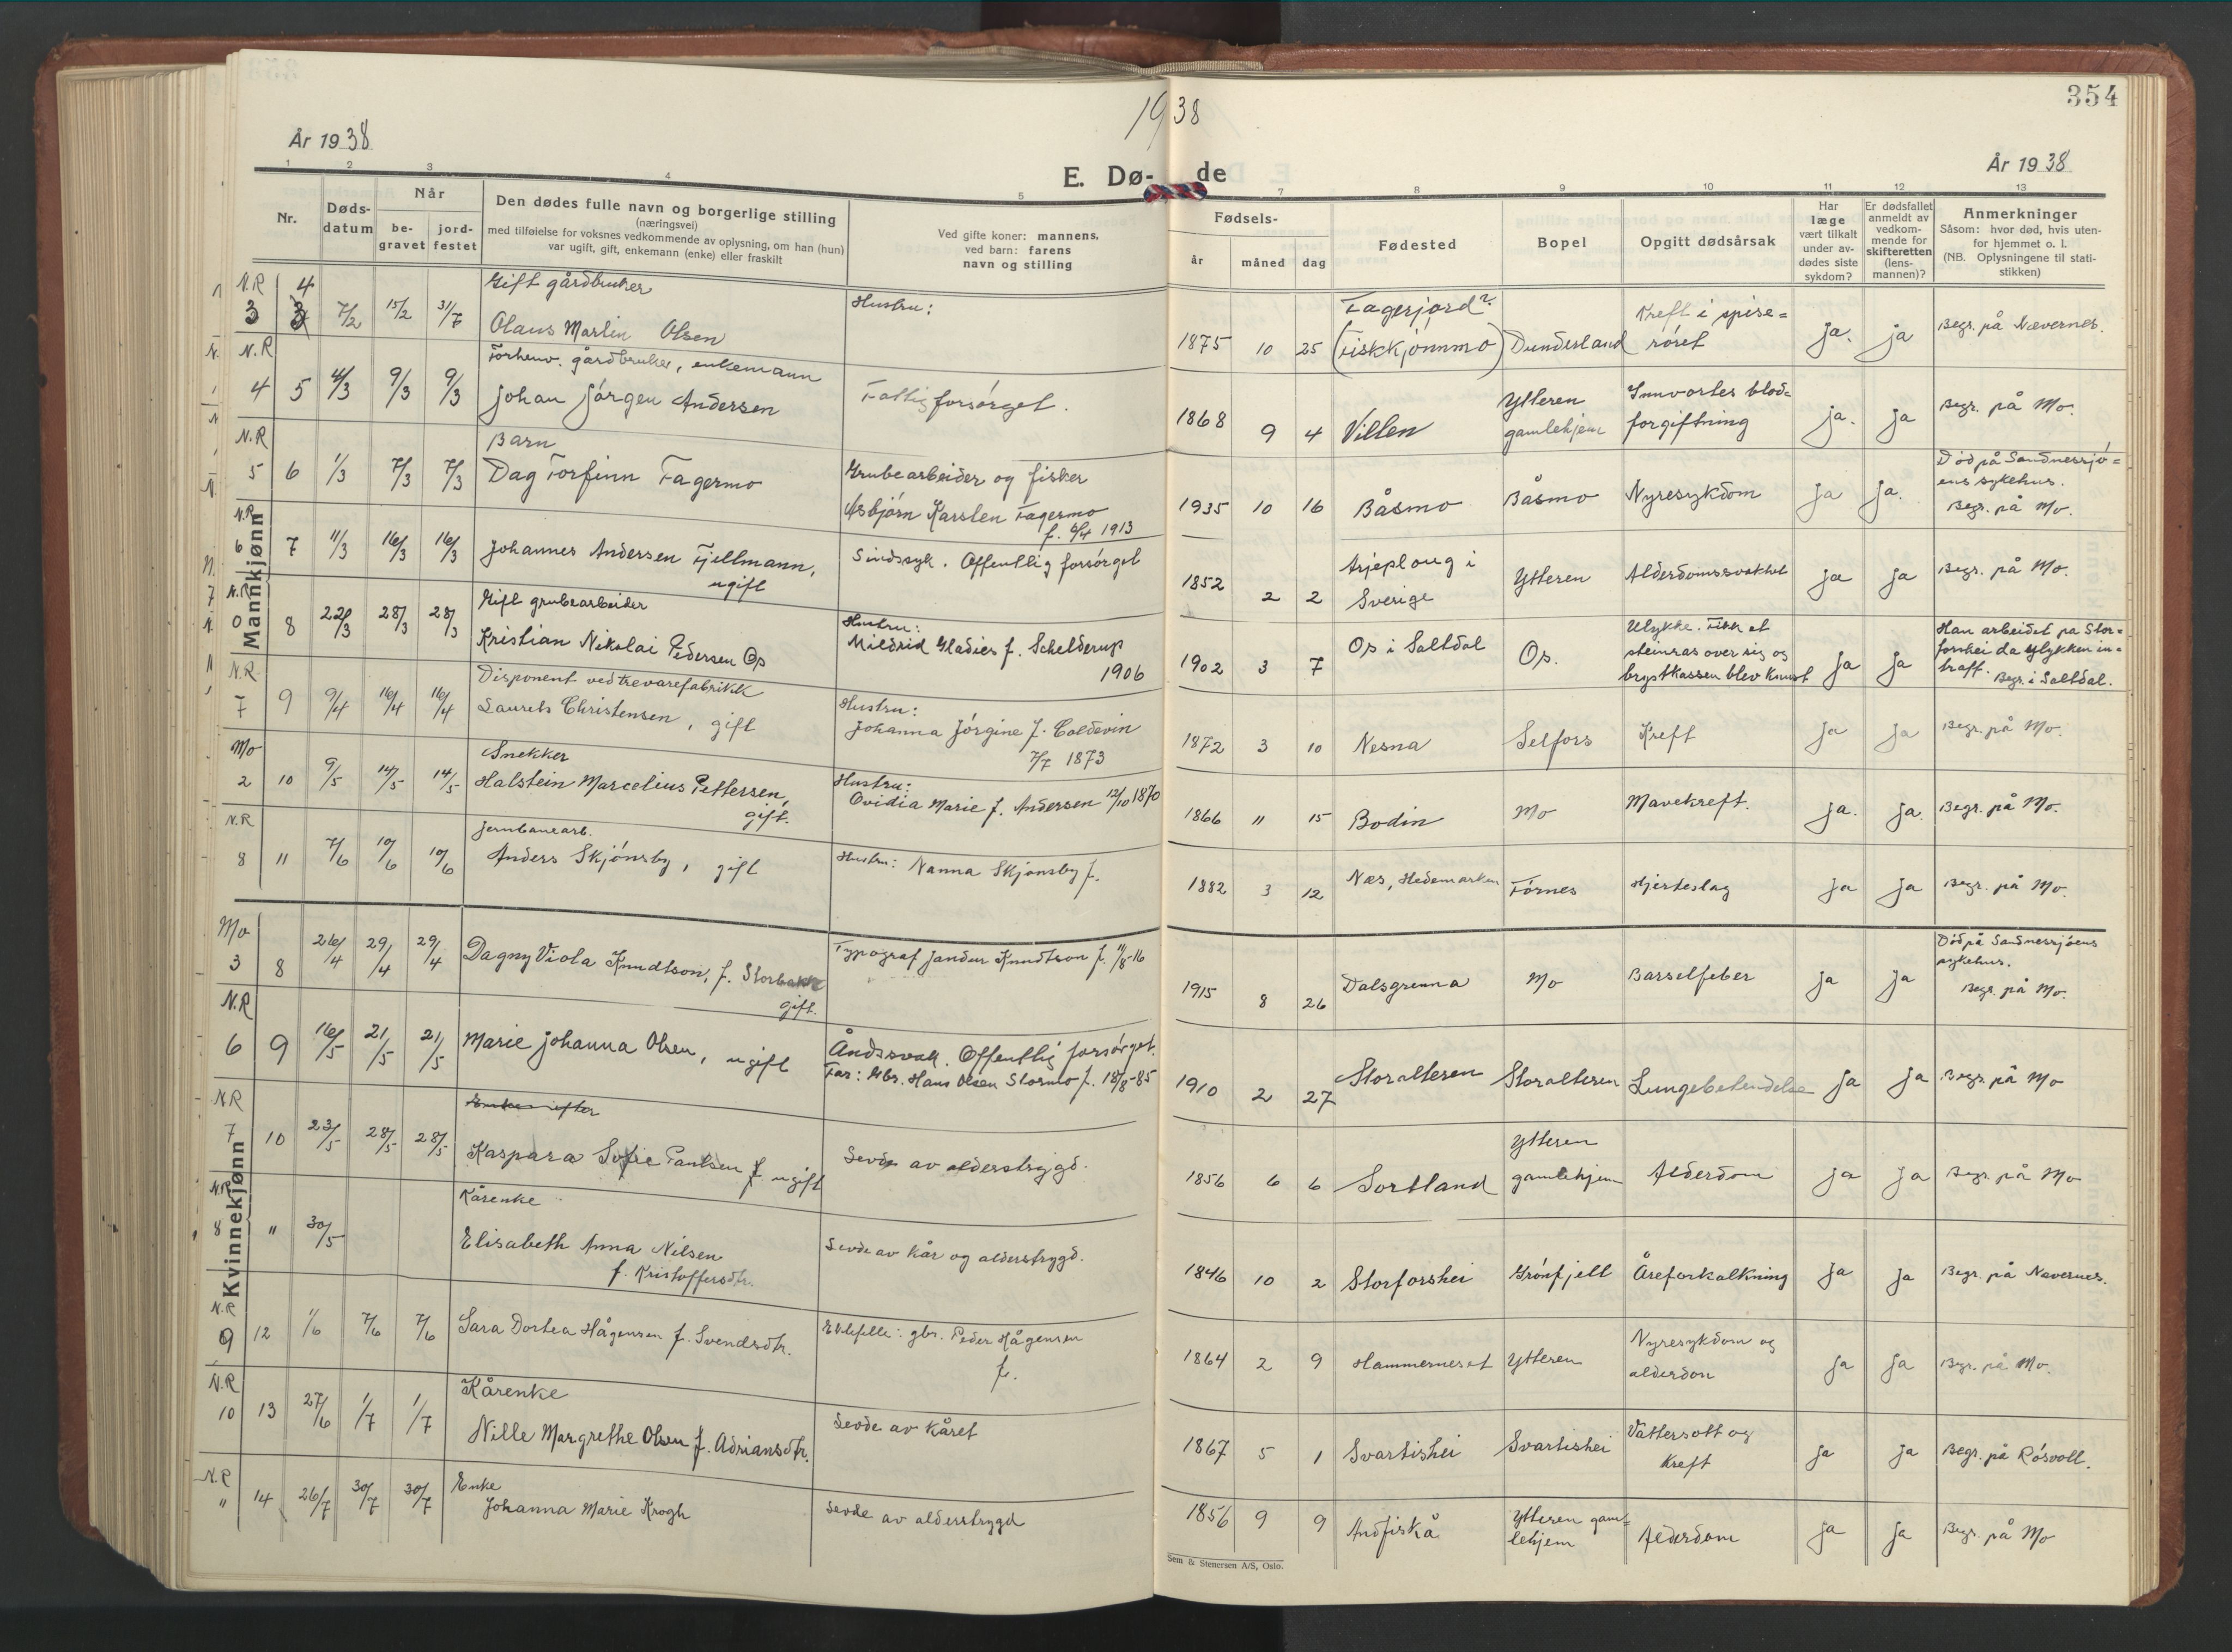 1938
354
År 1938
År 1938
E. Dø-
de
1 2 3 4 5 7 8 9 10 11 12 13
Nr.
Døds-
datum
Når
be-
gravet
jord-
festet
Den dødes fulle navn og borgerlige stilling
(næringsvei)
med tilføielse for voksnes vedkommende av oplysning, om han (hun)
var ugift, gift, enkemann (enke) eller fraskilt
Ved gifte koner: mannens,
ved barn: farens
navn og stilling
Fødsels-
år måned dag
Fødested
Bopel
Opgitt dødsårsak
Har
læge
vært tilkalt
under av-
dødes siste
sykdom?
Er dødsfallet
anmeldt av
vedkom-
mende for
skifteretten
(lens-
mannen)?
Anmerkninger
Såsom: hvor død, hvis uten-
for hjemmet o. l.
(NB. Oplysningene til stati-
stikken)
Mannkjønn
N.R 4
3 3 7/2 15/2 31/7
Gift gårdbruker
Olaus Martin Olsen
Hustru:
1875 10 25
Fagerjord?
(Fiskkjønnmo)
Dunderland
Kreft i spise=
røret
ja. ja
Begr. på Nævernes.
N.R
4 5 4/3 9/3 9/3
Forhenv. gårdbruker, enkemann
Johan Jørgen Andersen
Fattigforsørget.
1868 9 4
Villen
Ytteren
gamlehjem
Innvortes blod=
forgiftning
ja. ja
Begr. på Mo.
N.R
5 6 1/3 7/3 7/3
Barn
Dag Torfinn Fagermo
Grubearbeider og fisker
Asbjørn Karsten Fagermo
f. 6/4 1913
1935 10 16
Båsmo
Båsmo
Nyresykdom
ja ja.
Død på Sandnessjø=
ens sykehus.
Begr. på Mo.
N.R
6 7 11/3 16/3 16/3
Johannes Andersen Fjellmann,
ugift
Sindssyk. Offentlig forsørget
1852 2 2
Arjeploug i
Sverige
Ytteren
Alderdomssvakhet
ja ja
Begr. på Mo.
N.R
0 8 22/3 28/3 28/3
Gift grubearbeider
Kristian Nikolai Pedersen Os
Hustru:
Mildrid Gladies f. Schelderup
1906
1902 3 7
Os i Saltdal
Os.
Ulykke. Fikk et
steinras over sig og
brystkassen blev knust
ja ja
Han arbeidet på Stor=
forshei da ulykken in=
traff. Begr. i Saltdal.
N.R.
7 9 9/4 16/4 16/4
Disponent ved trevarefabrikk
Laurits Christensen, gift
Hustru:
Johanna Jørgine f. Coldevin
7/7 1873
1872 3 10
Nesna
Selfors
Kreft
ja ja
Begr. på Mo.
Mo
2 10 9/5 14/5 14/5
Snekker
Halstein Marcelius Pettersen,
gift.
Hustru:
Ovidia Marie f. Andersen 12/10 1870
1866 11 15
Bodin
Mo
Mavekreft.
ja. ja.
Begr. på Mo.
N.R
8 11 7/6 10/6 10/6
Jernbanearb.
Anders Skjønsby, gift
Hustru: Nanna Skjønsby f.
1882 3 12
Næs, Hedemarken
Fornes
Hjerteslag
ja ja
Begr. på Mo.
Kvinnekjønn
Mo
3 8 26/4 29/4 29/4
Dagny Viola Knudtson, f. Storbakk
gift.
Typograf Jandur Knudtson f. 11/8-16
1915 8 26
Dalsgrenna
Mo
Barselfeber
ja ja
Død på Sandnessjøens
sykehus.
Begr. på Mo.
N.R
6 9 16/5 21/5 21/5
Marie Johanna Olsen, ugift
Åndssvak. Offentlig forsørget.
Far: Gbr. Hans Olsen Stormo f. 18/8-85
1910 2 27
Storalteren
Storalteren
Lungebetendelse
ja ja
Begr. på Mo
N.R
7 10 23/5 28/5 28/5
Enke efter
Kaspara Sofie Paulsen f ugift
Levde av alderstrygd.
1856 6 6
Sortland
Ytteren
gamlehjem
Alderdom
ja ja
Begr. på Mo
N.R
8 11 30/5
Kårenke
Elisabeth Anna Nilsen
f. Kristoffersdtr.
Levde av kår og alderstrygd.
1846 10 2
Storforshei
Grønfjell
Åreforkalkning
ja ja
Begr. på Nævernes.
N.R
9 12 1/6 7/6 7/6
Sara Dortea Hågensen f. Svendsdtr.
Ektefelle: gbr. Peder Hågensen
f.
1864 2 9
Hammerneset
Ytteren
Nyresykdom og
alderdom
ja ja
Begr. på Mo.
N.R
10 13 27/6 1/7 1/7
Kårenke
Nille Margrethe Olsen f. Adriansdtr.
Levde av kåret
1867 5 1
Svartishei
Svartishei
Vattersott og
kreft
ja ja
Begr. på Røsvoll.
N.R
11 14 26/7 30/7 30/7
Enke
Johanna Marie Krogh
Levde av alderstrygd
1856 9 9
Andfiskå
Ytteren gam=
lehjem
Alderdom
ja ja
Begr. på Mo
Sem & Stenersen A/S, Oslo.